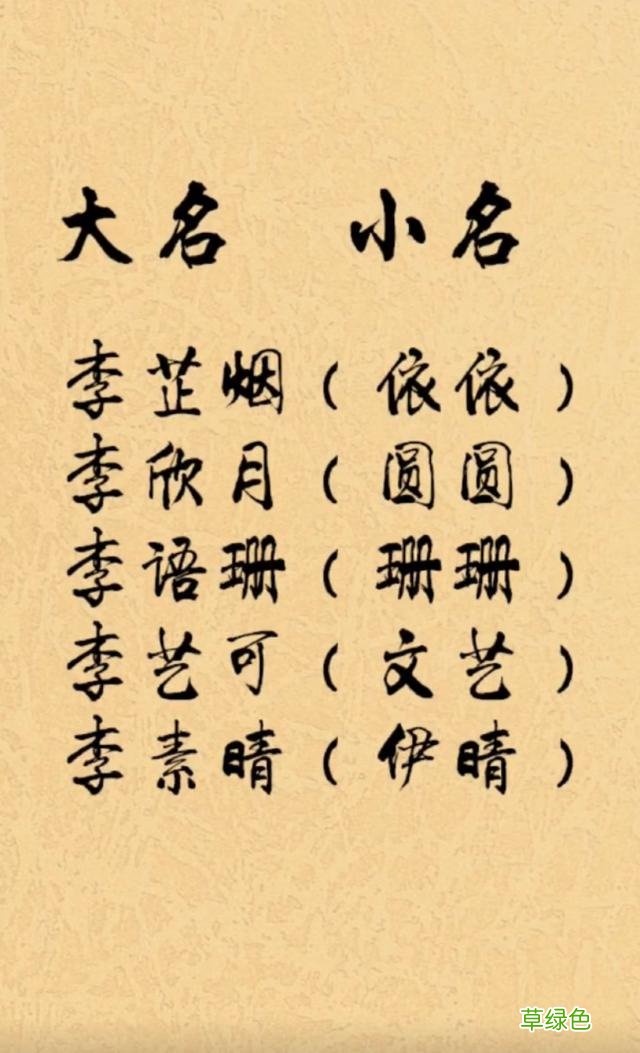 大名 小名
李芷烟(依依)
李欣月(圆圆)
李语珊(珊珊)
李艺可(文艺)
李素晴(伊晴)
草绿色